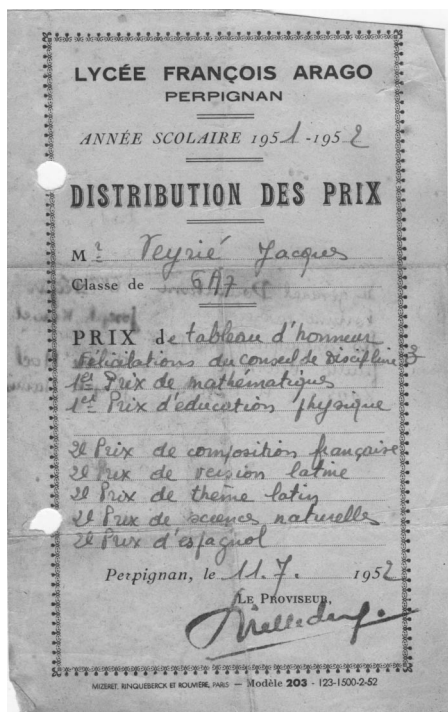 LYCÉE FRANÇOIS ARAGO
PERPIGNAN
ANNÉE SCOLAIRE 1951-1952
DISTRIBUTION DES PRIX
Mr Veyrié Jacques
Classe de 6A7
PRIX de tableau d'honneur
Félicitations du conseil de Discipline
1er Prix de mathématiques
1er Prix d'éducation physique
2e Prix de composition française
2e Prix de version latine
2e Prix de thème latin
2e Prix de sciences naturelles
2e Prix d'espagnol
Perpignan, le 11.7. 1952
LE PROVISEUR,
MIZERET, RINQUEBERCK ET ROUMÈRE, PARIS — Modèle 203 - 123-1500-2-52